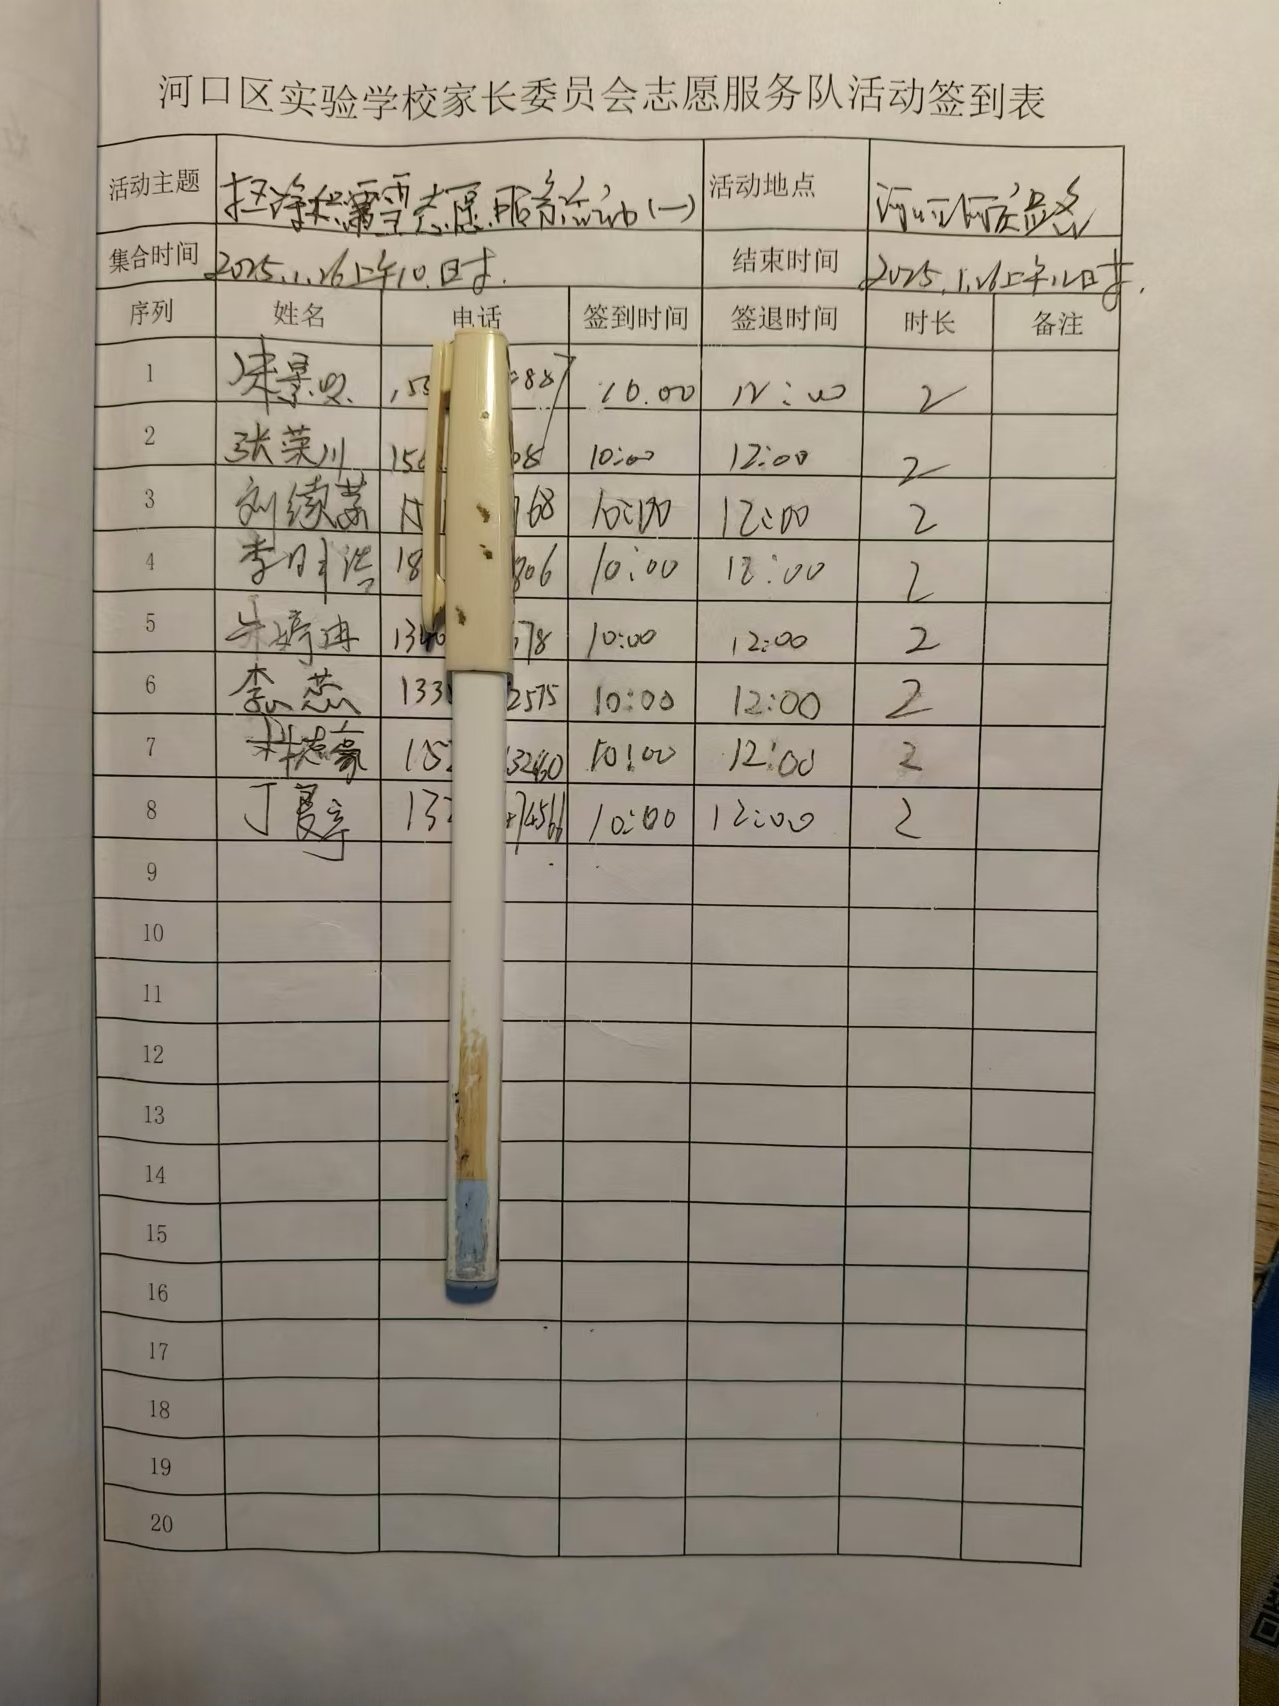 河口区实验学校家长委员会志愿服务队活动签到表
活动主题 扫净积雪志愿服务活动(一) 活动地点
集合时间 2025.1.26上午10时. 结束时间 2025.1.26上午12时.
序列 姓名 电话 签到时间 签退时间 时长 备注
1 10.00 12:00 2
2 张荣川 10:00 12:00 2
3 刘续 168 10:00 12:00 2
4 李 浩 18 806 10:00 12:00 2
5 朱婷 178 10:00 12:00 2
6 李蕊 133 2575 10:00 12:00 2
7 林志豪 10:00 12:00 2
8 丁 13 74566 10:00 12:00 2
9
10
11
12
13
14
15
16
17
18
19
20